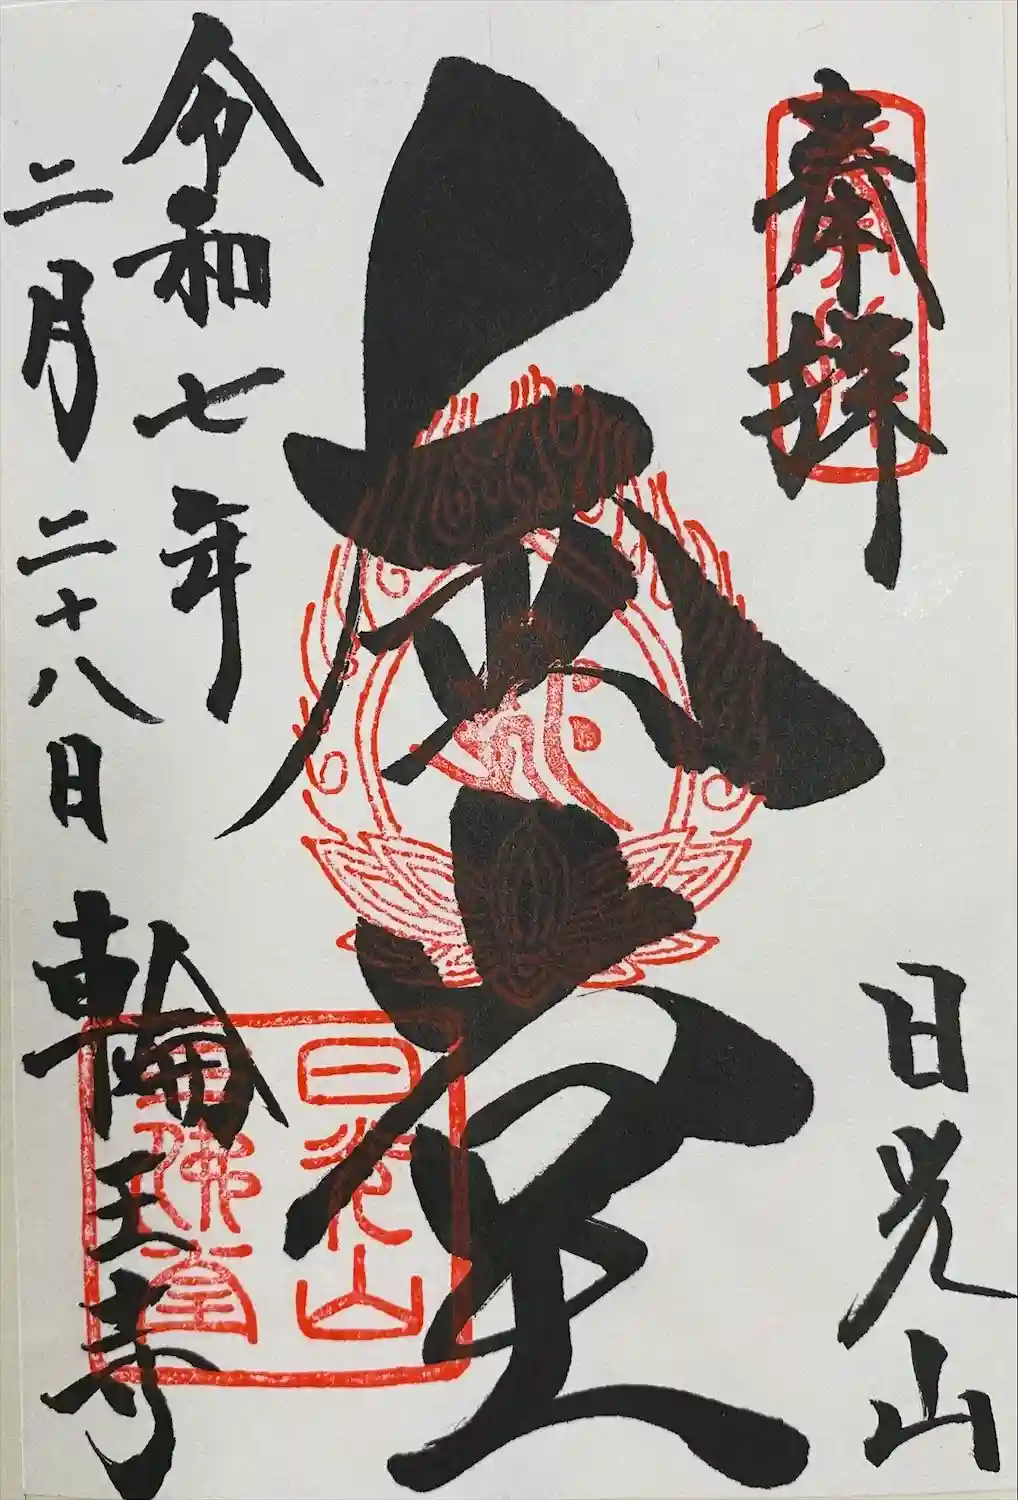 奉拝
日光山
堂
令和七年
二月二十八日
輪王寺
日光山
三佛堂